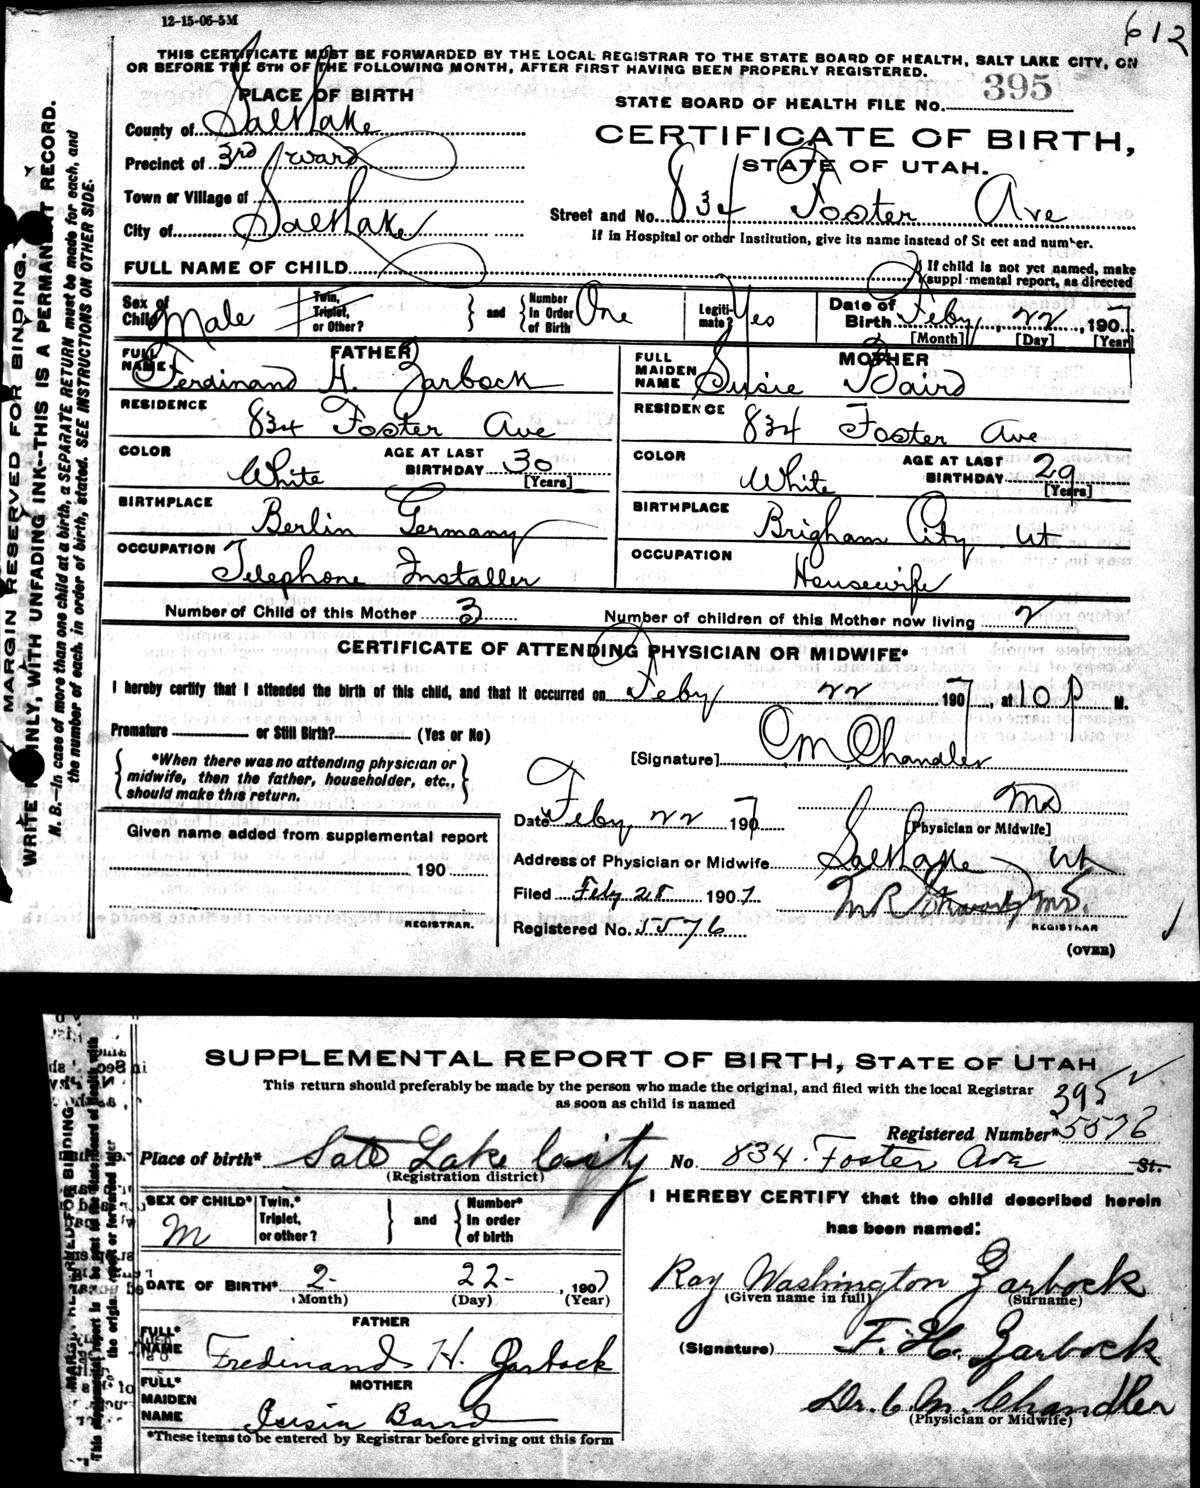 12-15-06-5M
612
THIS CERTIFICATE MUST BE FORWARDED BY THE LOCAL REGISTRAR TO THE STATE BOARD OF HEALTH, SALT LAKE CITY, ON
OR BEFORE THE 5TH OF THE FOLLOWING MONTH, AFTER FIRST HAVING BEEN PROPERLY REGISTERED.
PLACE OF BIRTH
STATE BOARD OF HEALTH FILE No. 395
County of Salt Lake
CERTIFICATE OF BIRTH,
Precinct of 3rd Ward
STATE OF UTAH.
Town or Village of
Street and No. 834 Foster Ave
City of Salt Lake
If in Hospital or other Institution, give its name instead of St eet and number.
FULL NAME OF CHILD
If child is not yet named, make
suppl mental report, as directed
Sex of Child Male
Twin, Triplet, or Other?
and
Number In Order of Birth One
Legiti- mate? Yes
Date of Birth Feby 22, 1907
[Month] [Day] [Year]
FATHER
MOTHER
FULL NAME Ferdinand H. Zarbock
FULL MAIDEN NAME Susie Baird
RESIDENCE 834 Foster Ave
RESIDENCE 834 Foster Ave
COLOR White
AGE AT LAST BIRTHDAY 30 [Years]
COLOR White
AGE AT LAST BIRTHDAY 29 [Years]
BIRTHPLACE Berlin Germany
BIRTHPLACE Brigham City Ut
OCCUPATION Telephone Installer
OCCUPATION Housewife
Number of Child of this Mother 3
Number of children of this Mother now living 2
CERTIFICATE OF ATTENDING PHYSICIAN OR MIDWIFE*
I hereby certify that I attended the birth of this child, and that it occurred on Feby 22 1907, at 10 P M.
Premature or Still Birth? (Yes or No)
[Signature] CM Chandler
*When there was no attending physician or
midwife, then the father, householder, etc.,
should make this return.
MD
Date Feby 22 1907
[Physician or Midwife]
Given name added from supplemental report
Address of Physician or Midwife Salt Lake Ut
190
Filed Feby 28 1907
REGISTRAR.
Registered No. 5576
REGISTRAR
(OVER)
MARGIN RESERVED FOR BINDING.
WRITE PLAINLY, WITH UNFADING INK--THIS IS A PERMANENT RECORD.
N. B.--In case of more than one child at a birth, a SEPARATE RETURN must be made for each, and
the number of each, in order of birth, stated. SEE INSTRUCTIONS ON OTHER SIDE.
SUPPLEMENTAL REPORT OF BIRTH, STATE OF UTAH
This return should preferably be made by the person who made the original, and filed with the local Registrar
as soon as child is named
395
Registered Number* 5576
Place of birth* Salt Lake City
No. 834 Foster Ave St.
(Registration district)
SEX OF CHILD* M
Twin,* Triplet, or other?
and
Number* In order of birth
I HEREBY CERTIFY that the child described herein
has been named:
DATE OF BIRTH* 2- 22- , 1907
(Month) (Day) (Year)
Ray Washington Zarbock
(Given name in full) (Surname)
FATHER
FULL* NAME Fredinand H. Zarbock
(Signature) F. H. Zarbock
MOTHER
FULL* MAIDEN NAME
Dr. C. M. Chandler
(Physician or Midwife)
*These items to be entered by Registrar before giving out this form